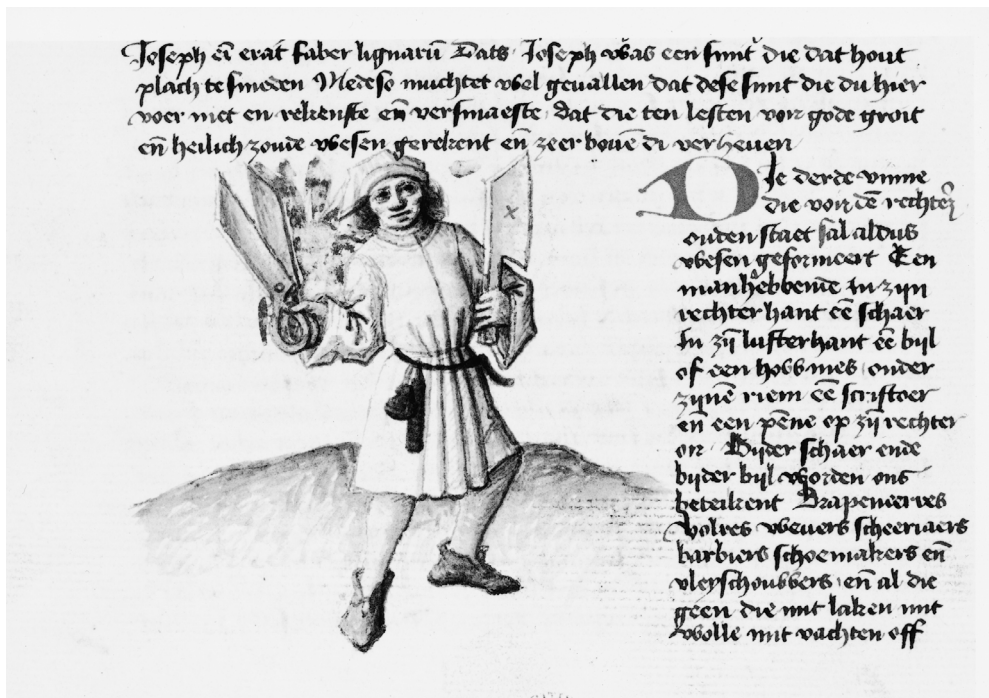 Joseph eñ erat faber lignarū Dats Joseph was een smit die dat hout
plach te smeden Mede so muchtet wel geuallen dat dese smit die du hier
voer niet en rekenste eñ versmaeste dat die ten lesten voir gode groit
eñ heilich zoude wesen gerekent eñ zeer bouē di verheuen
Die derde vinne
die voir dē rechter
ouden staet sal aldus
wesen geformeert Een
man hebbende In zijn
rechter hant eē schaer
In zij lufter hant eē bijl
of een hou mes onder
zijnē riem eē scriftoer
en een pēne op zij rechter
or Bijder schaer ende
bijder bijl worden ons
beteikent Drapenierres
volres weuers scheeriaers
barbiers schoemakers eñ
vleyschoubbers eñ al die
geen die mit laken mit
wolle mit vachten off